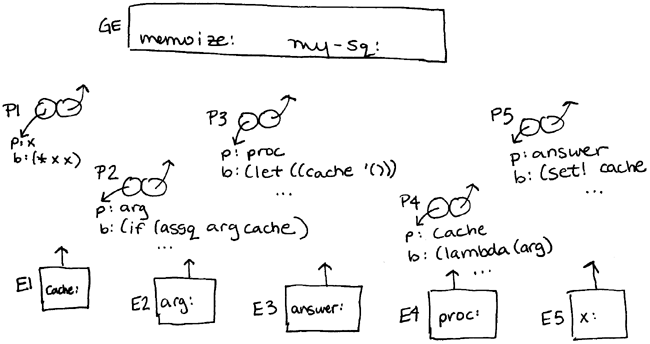 GE
memoize: my-sq:
P1
p: x
b: (* x x)
P2
p: arg
b: (if (assq arg cache)
...
P3
p: proc
b: (let ((cache '())
...
P4
p: cache
b: (lambda (arg)
...
P5
p: answer
b: (set! cache
...
E1 cache:
E2 arg:
E3 answer:
E4 proc:
E5 x: